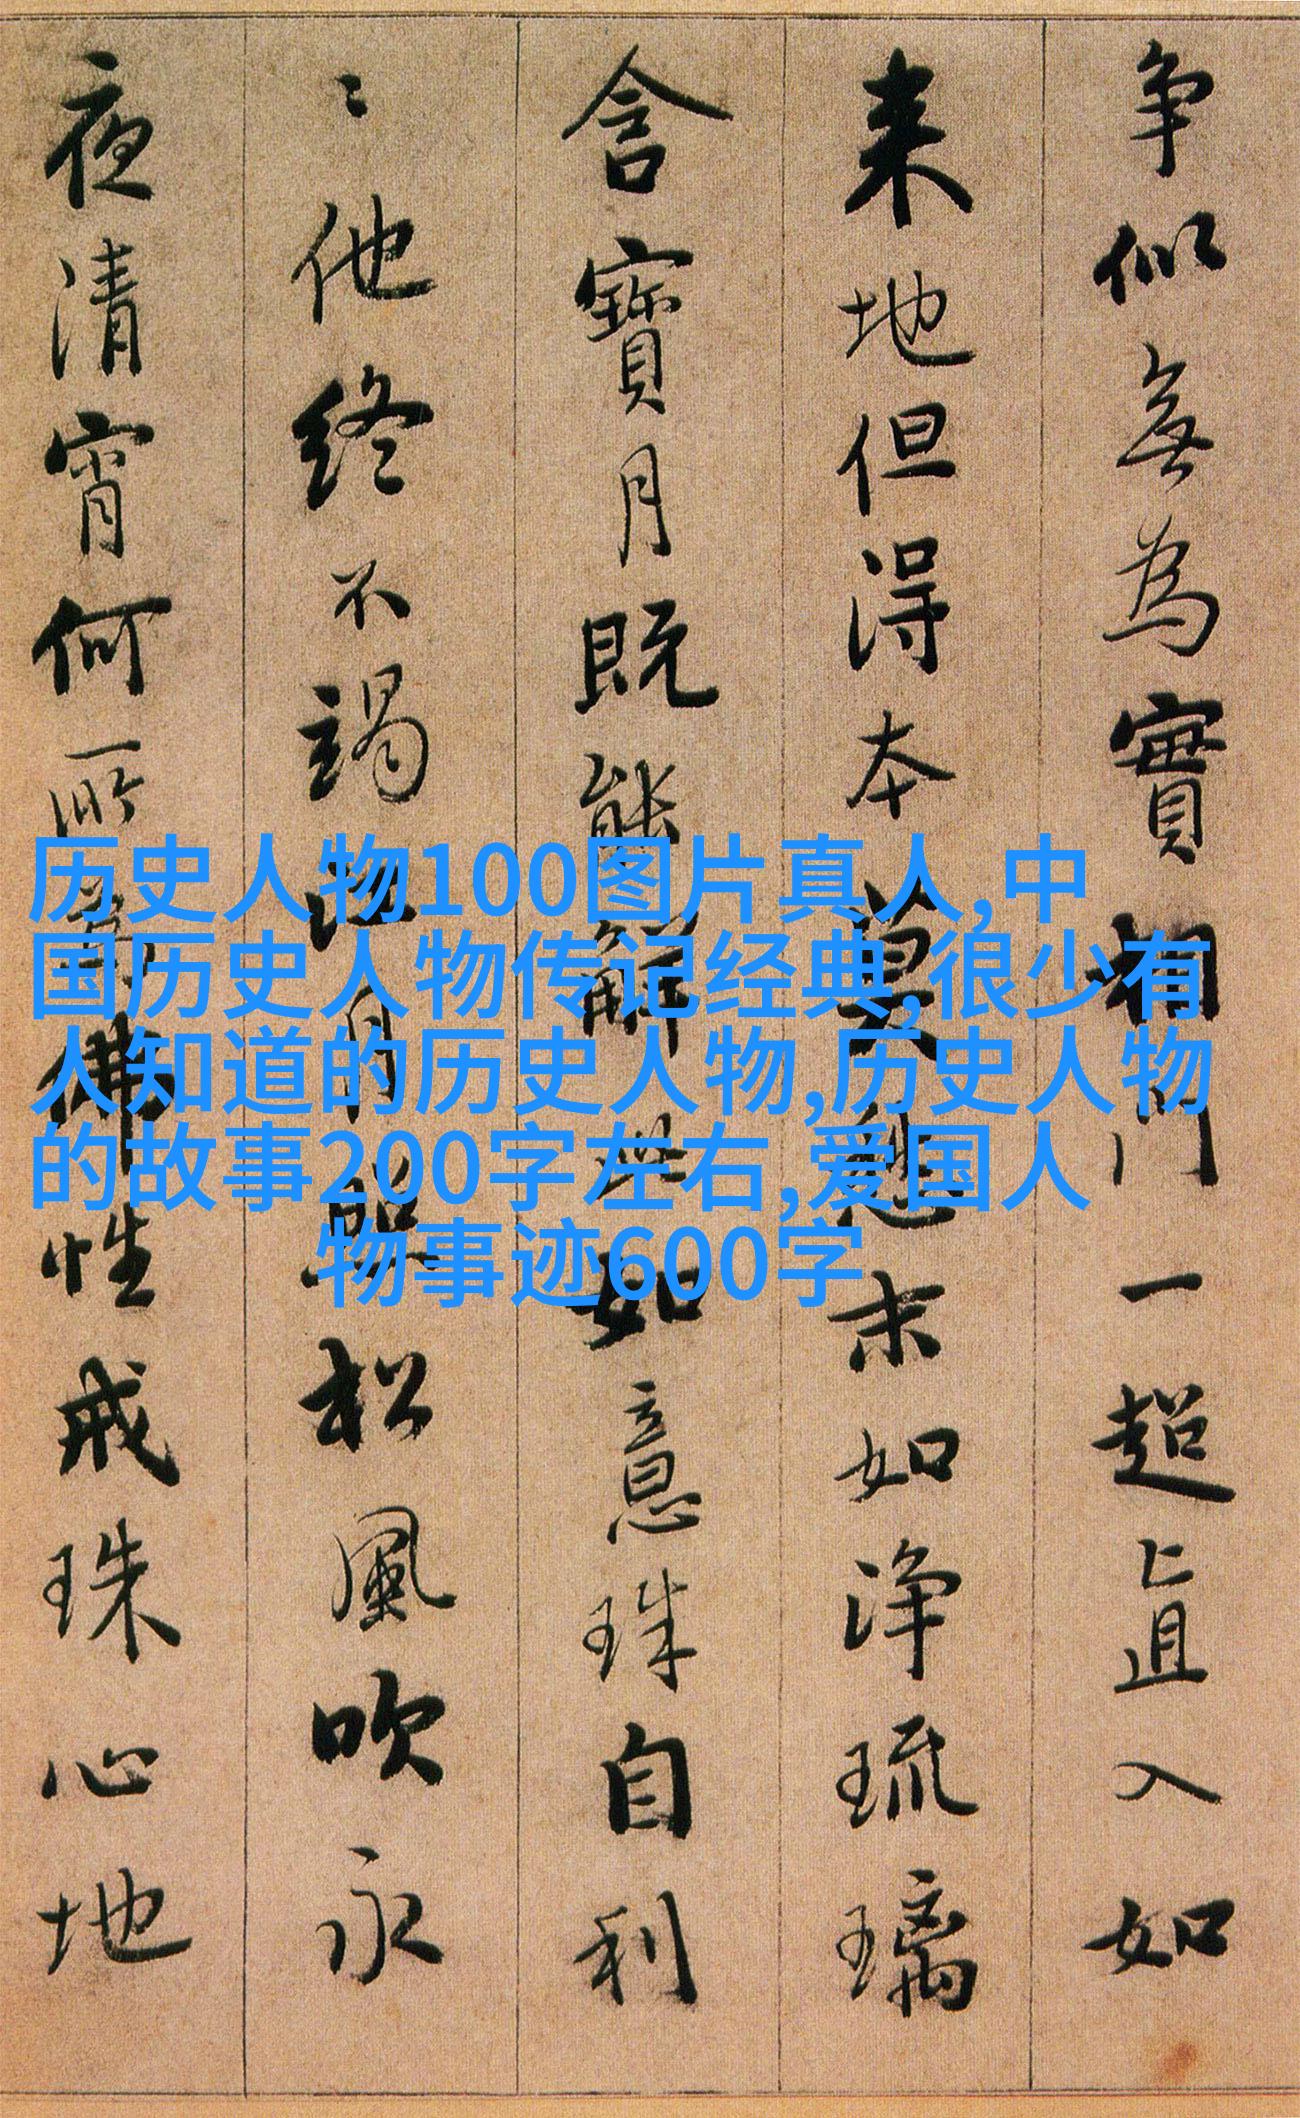 争似無為實相門一超直入如
来地但得本莫愁末如净琉璃
含寶月既能解此如意珠自利
〻他終不竭江月照松風吹永
夜清宵何所為佛性戒珠心地
历史人物100图片真人,中
国历史人物传记经典,很少有
人知道的历史人物,历史人物
的故事200字左右,爱国人
物事迹600字